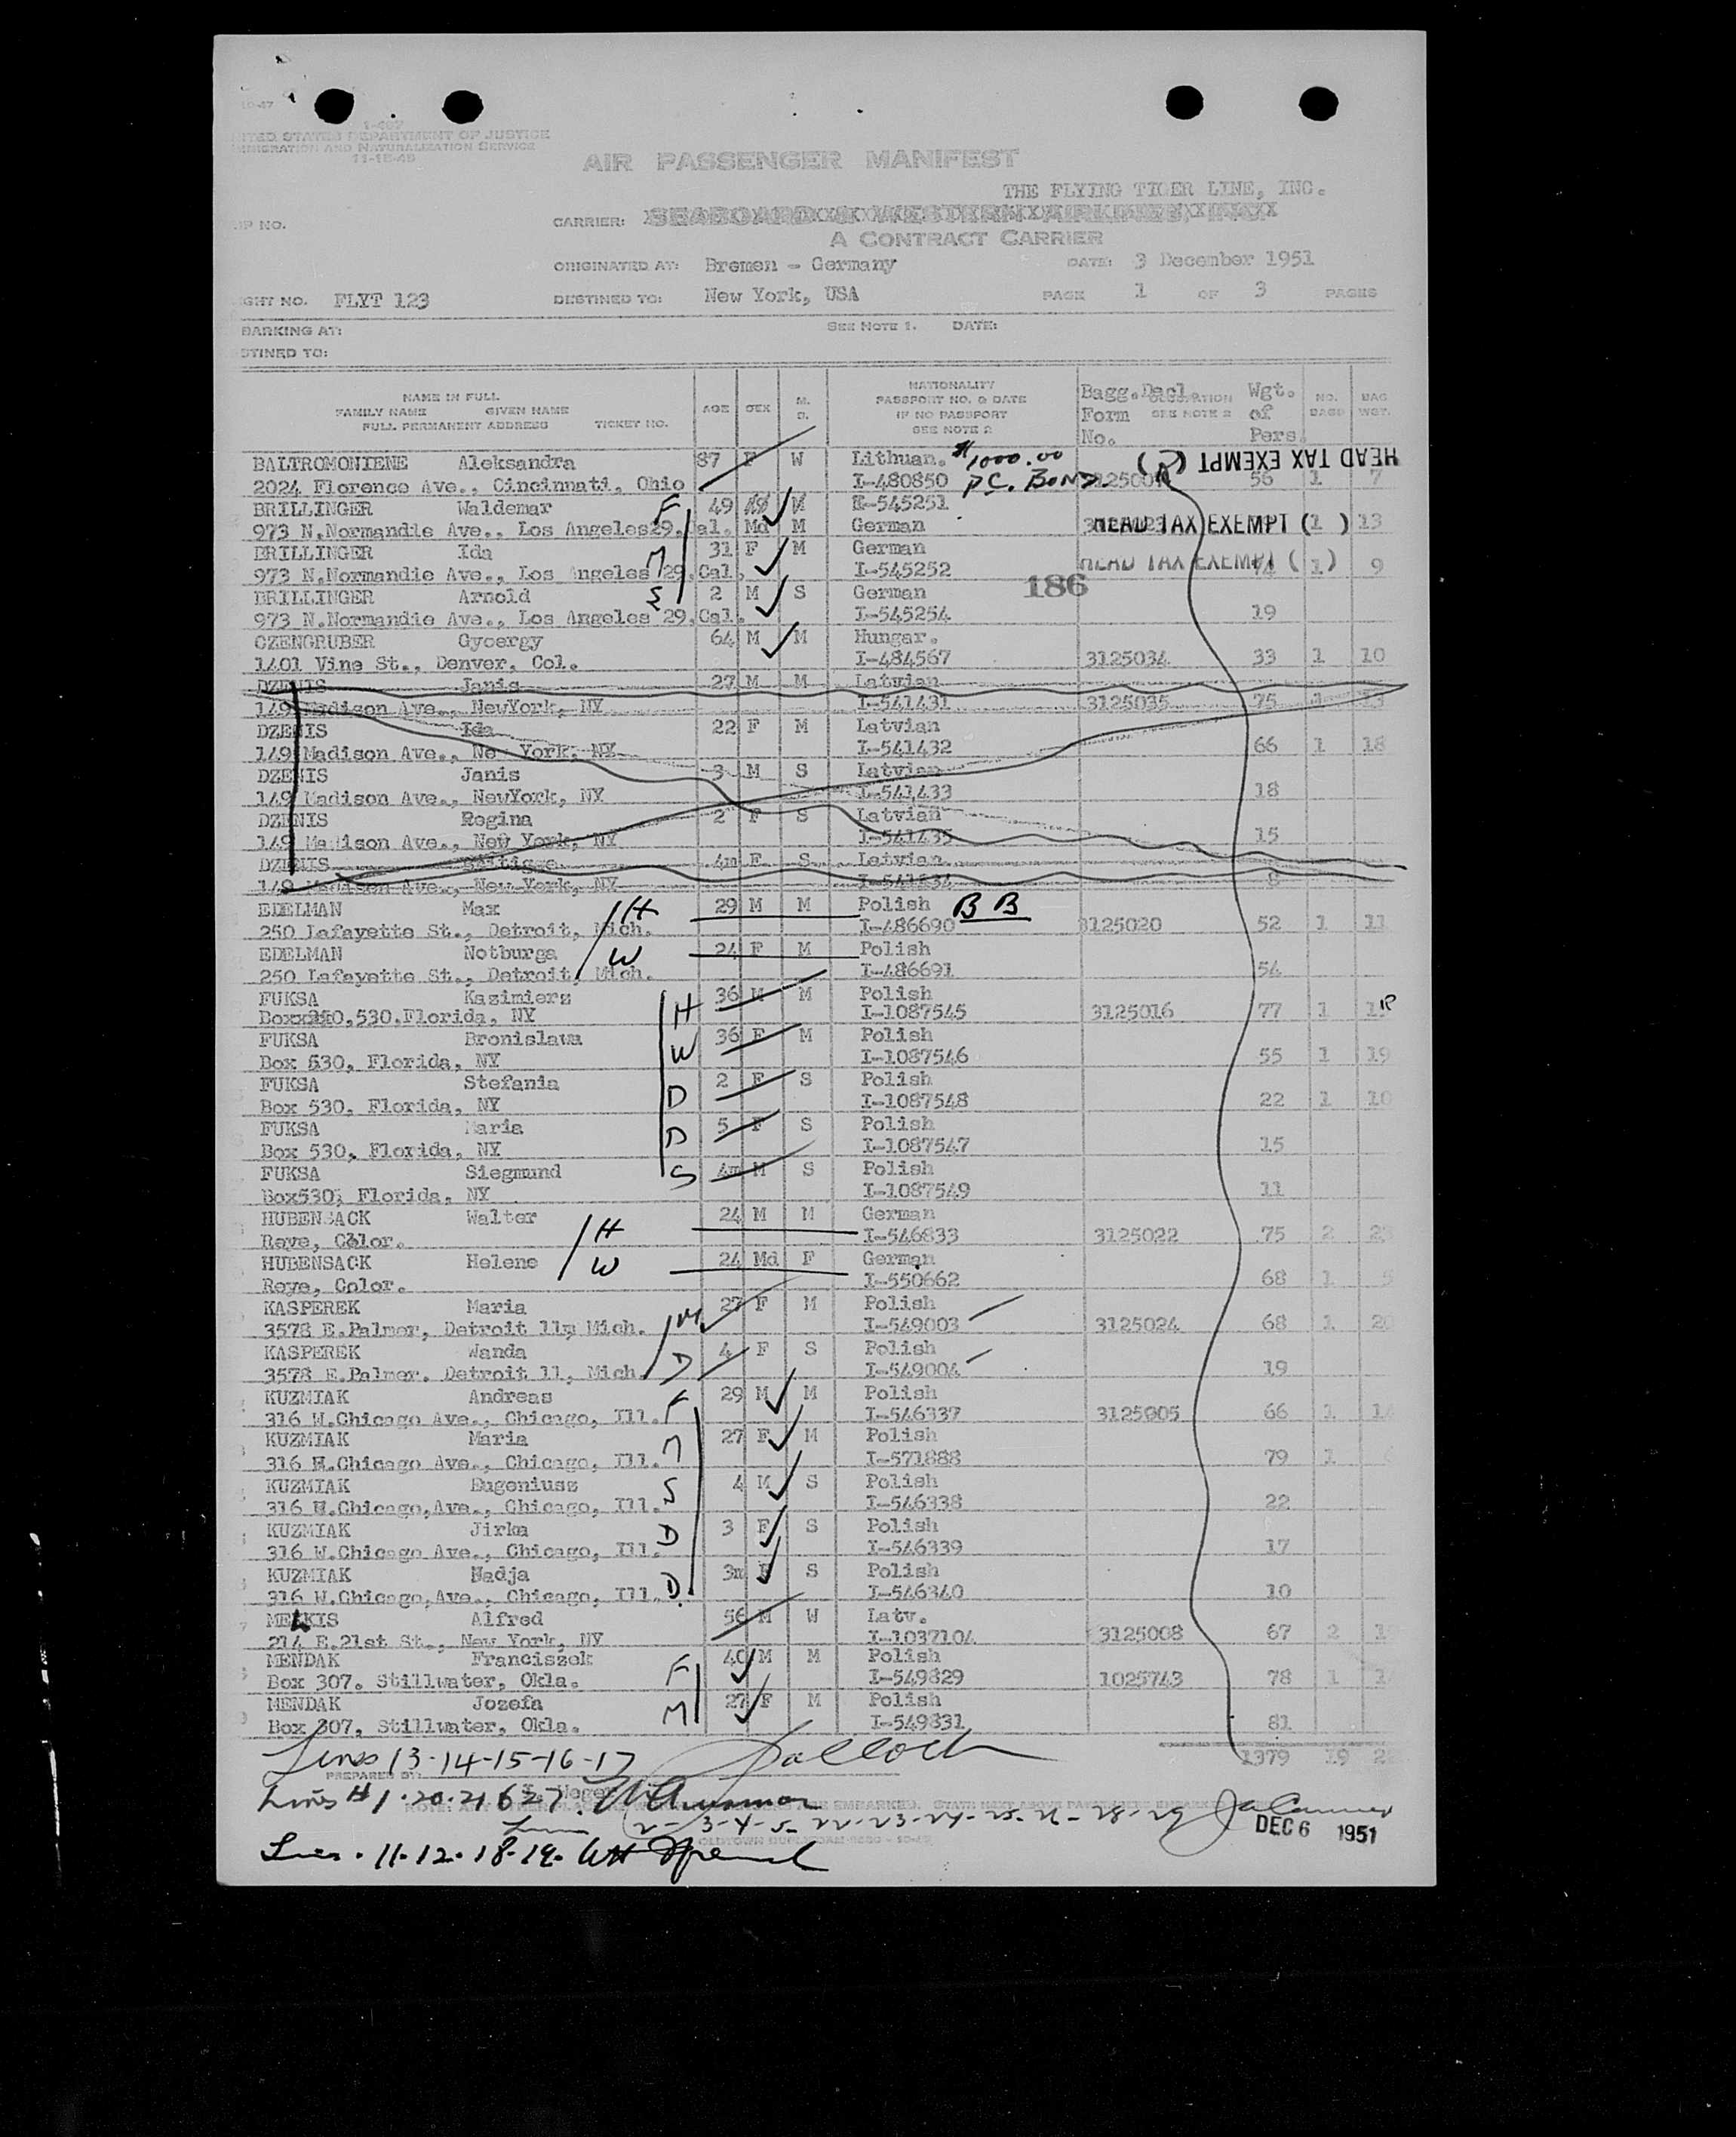 10-47
I-467
ITED STATES DEPARTMENT OF JUSTICE
MMIGRATION AND NATURALIZATION SERVICE
11-15-48
AIR PASSENGER MANIFEST
THE FLYING TIGER LINE, INC.
IP NO.
CARRIER: SEABOARD & WESTERN AIRLINES, INC.
A CONTRACT CARRIER
ORIGINATED AT: Bremen - Germany DATE: 3 December 1951
GHT NO. FLYT 123 DESTINED TO: New York, USA PAGE 1 OF 3 PAGES
BARKING AT: SEE NOTE 1. DATE:
STINED TO:
NAME IN FULL
FAMILY NAME GIVEN NAME
FULL PERMANENT ADDRESS TICKET NO.
AGE SEX M. S.
NATIONALITY
PASSPORT NO. & DATE
IF NO PASSPORT
SEE NOTE 2
Bagg. Decl. Form No.
SEE NOTE 2
Wgt. of Pers.
NO. BAGS
BAG WGT.
BALTROMONIENE Aleksandra 87 F W Lithuan. $1000.00 HEAD TAX EXEMPT ( )
2024 Florence Ave., Cincinnati, Ohio I-480850 P.C. BOND. 56 1 7
BRILLINGER Waldemar F 49 M I-545251
973 N.Normandie Ave., Los Angeles 29. Cal. Md M German HEAD TAX EXEMPT (1) 13
BRILLINGER Ida M 31 F M German
973 N.Normandie Ave., Los Angeles 29. Cal. I-545252 HEAD TAX EXEMPT ( 1) 9
BRILLINGER Arnold S 2 M S German 186
973 N.Normandie Ave., Los Angeles 29. Cal. I-545254 19
CZENGRUBER Gyoergy 64 M M Hungar.
1401 Vine St., Denver, Col. I-484567 3125034 33 1 10
DZENIS Janis 27 M M Latvian
149 Madison Ave., NewYork, NY I-541431 3125035 75 1 13
DZENIS Ida 22 F M Latvian
149 Madison Ave., New York, NY I-541432 66 1 18
DZENIS Janis 3 M S Latvian
149 Madison Ave., NewYork, NY I-541433 18
DZENIS Rogina 2 F S Latvian
149 Madison Ave., New York, NY I-541435 15
DZENIS 4m F S Latvian
149 Madison Ave., New York, NY I-541434 8
EDELMAN Max H 29 M M Polish B B
250 Lafayette St., Detroit, Mich. I-486690 3125020 52 1 11
EDELMAN Notburga W 24 F M Polish
250 Lafayette St., Detroit, Mich. I-486691 54
FUKSA Kazimierz H 36 M M Polish
Box 530, Florida, NY I-1087545 3125016 77 1 1
FUKSA Bronislawa W 36 F M Polish
Box 530, Florida, NY I-1087546 55 1 19
FUKSA Stefania D 2 F S Polish
Box 530, Florida, NY I-1087548 22 1 10
FUKSA Maria D 5 F S Polish
Box 530, Florida, NY I-1087547 15
FUKSA Siegmund S 4m M S Polish
Box530, Florida, NY I-1087549 11
HUBENSACK Walter H 24 M M German
Reye, Color. I-546833 3125022 75 2 23
HUBENSACK Helene W 24 Md F German
Reye, Color. I-550662 68 1 5
KASPEREK Maria M 27 F M Polish
3578 E.Palmer, Detroit 11, Mich. I-549003 3125024 68 1 20
KASPEREK Wanda D 4 F S Polish
3578 E.Palmer. Detroit 11, Mich. I-549004 19
KUZMIAK Andreas F 29 M M Polish
316 W.Chicago Ave., Chicago, Ill. I-546337 3125005 66 1 1
KUZMIAK Maria M 27 F M Polish
316 W.Chicago Ave., Chicago, Ill. I-571888 79 1
KUZMIAK Eugeniusz S 4 M S Polish
316 W.Chicago,Ave., Chicago, Ill. I-546338 22
KUZMIAK Jirka D 3 F S Polish
316 W.Chicago Ave., Chicago, Ill. I-546339 17
KUZMIAK Nadja D 3m F S Polish
316 W.Chicago,Ave., Chicago, Ill. I-546340 10
MELKIS Alfred 56 M W Latv.
214 E.21st St., New York, NY I-1037104 3125008 67 2 1
MENDAK Franciszek F 40 M M Polish
Box 307. Stillwater, Okla. I-549829 1025743 78 1 1
MENDAK Jozefa M 27 F M Polish
Box 307, Stillwater, Okla. I-549831 81
1379 19 2
Lines 13-14-15-16-17
PREPARED BY:
Lines # 1-20-21 & 27.
Lines 2-3-4-5-22-23-24-25-26-28-29
DEC 6 1951
Lines. 11-12-18-19.